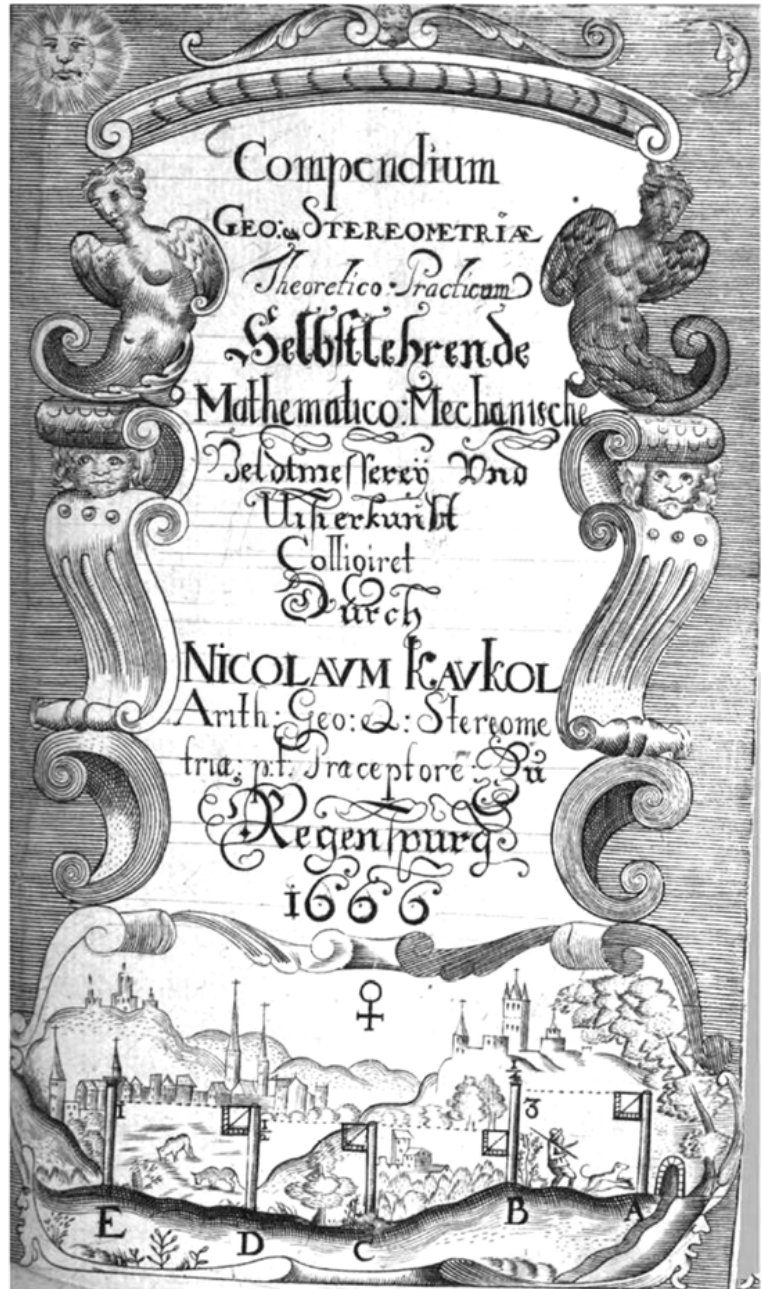 Compendium
GEO: & STEREOMETRIÆ
Theoretico-Practicum
Selbstlehrende
Mathematico:Mechanische
Veldtmesserey Vnd
Visierkunst
Colligiret
Durch
NICOLAVM KAVKOL
Arith: Geo: & : Stereome
triæ: p.t. Præceptorē Zu
Regenspurg
1666
1
1
1
3
E
D
C
B
A